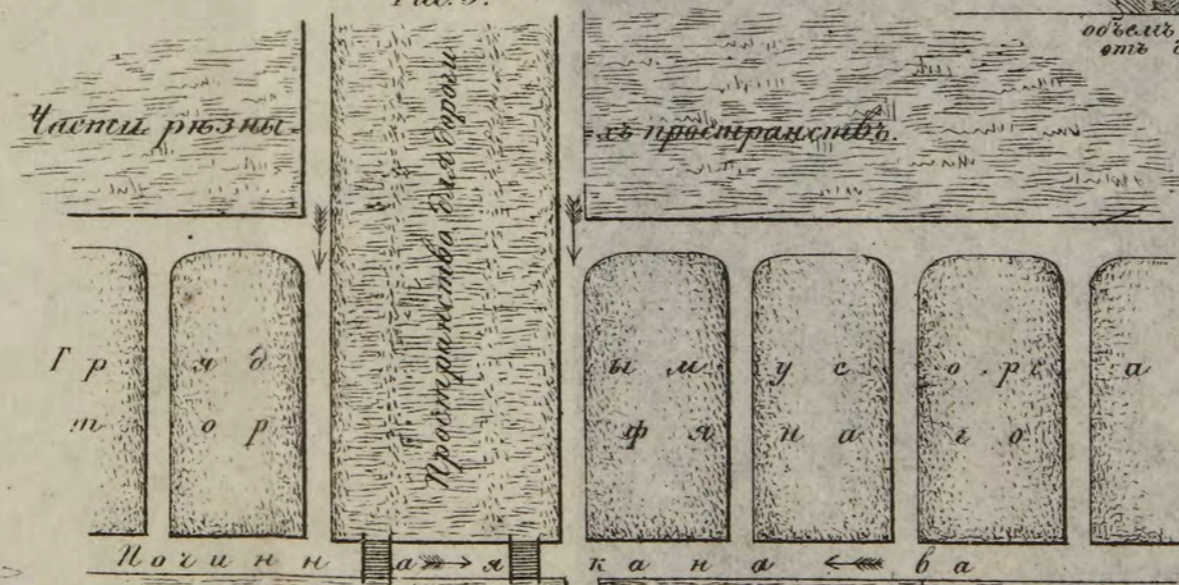 объемъ
отъ
Части рѣзны-
-хъ пространствъ.
Пространство для дороги
Г р я д ы м у с о р с а
т о р ф я н а г о
П о ч и н н а я к а н а в а